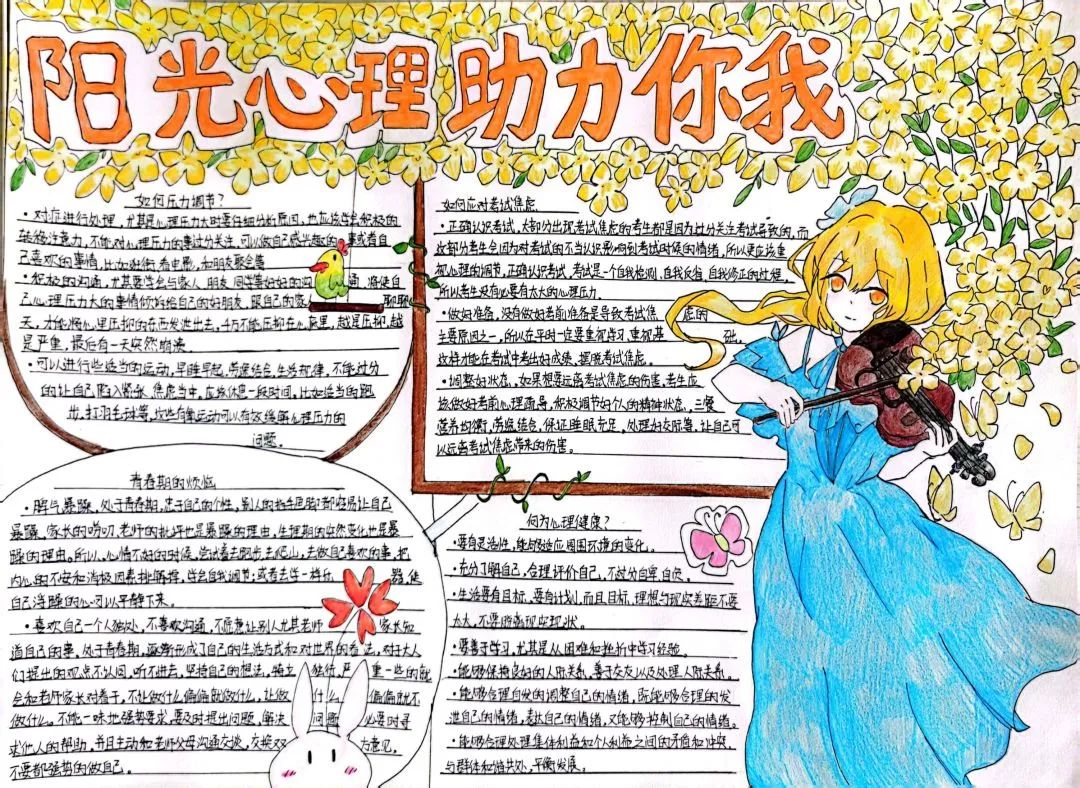 阳光心理助力你我
如何压力调节？
·对症进行处理，尤其是心理压力大时要仔细分析原因，也应该学会积极的
转移注意力，不能对心理压力的事过分关注，可以做自己感兴趣的事或者自
己喜欢的事情，比如逛街、看电影，和朋友聚会等
·积极的沟通，尤其要学会与家人、朋友、同学等好好的沟通，将使自
己心理压力大的事情倾诉给自己的好朋友，跟自己的家 聊聊
天，才能将心里压抑的东西发泄出去，千万不能压抑在心底里，越是压抑，越
是严重，最后有一天突然崩溃
·可以进行些适当的运动，早睡早起，劳逸结合，生活规律，不能过分
的让自己陷入紧张、焦虑当中，应该休息一段时间，比如适当的跑
步、打羽毛球等，这些有氧运动可以有效缓解心理压力的
问题。
如何应对考试焦虑
·正确认识考试，大部分出现考试焦虑的考生都是因为过分关注考试导致的，而
这部分考生会因为对考试的不当认识影响到考试时候的情绪，所以更应该重
视心理的调节，正确认识考试，考试是一个自我检测，自我反省，自我修正的过程，
所以考生没有必要有太大的心理压力.
·做好准备，没有做好考前准备是导致考试焦 虑的
主要原因之一，所以在平时一定要重视学习，重视基 础，
这样才能在考试中考出好成绩，摆脱考试焦虑。
·调整好状态，如果想要远离考试焦虑的伤害，考生应
该做好考前心理疏导，积极调节好个人的精神状态，三餐
营养均衡，劳逸结合，保证睡眠充足，处理好交际等，让自己可
以远离考试焦虑带来的伤害。
青春期的烦恼
·脾气暴躁，处于青春期，忠于自己的个性，别人的指手画脚都容易让自己
暴躁，家长的唠叨，老师的批评也是暴躁的理由，生理期的突然变化也是暴
躁的理由。所以，心情不好的时候，尝试着去跑步去爬山，去做自己喜欢的事，把
内心的不安和消极因素排解掉，学会自我调节；或者去学一样乐 器，使
自己浮躁的心可以平静下来。
·喜欢自己一个人独处，不喜欢沟通，不愿意让别人尤其老师 家长知
道自己的事，处于青春期，逐渐形成了自己的生活方式和对世界的看法，对于大人
们提出的观点不认同，听不进去，坚持自己的想法，独立 独行，严重一些的就
会和老师家长对着干，不让做什么偏偏就做什么，让做 什么 偏偏就不
做什么。不能一味地强势要求，要及时提出问题，解决 问题 必要时寻
求他人的帮助，并且主动和老师父母沟通交谈，交换双 方意见，
不要都强势的做自己。
何为心理健康？
·要有灵活性，能够适应周围环境的变化。
·充分了解自己，合理评价自己，不过分自卑、自负。
·生活要有目标，要有计划，而且目标、理想与现实差距不要
太大，不要脱离现实现状。
·要善于学习，尤其是从困难和挫折中学习经验。
·能够保持良好的人际关系，善于交友以及处理人际关系。
·能够合理自发的调整自己的情绪，既能够合理的发
泄自己的情绪，表达自己的情绪，又能够控制自己的情绪。
·能够合理处理集体利益和个人利益之间的矛盾和冲突，
与群体和谐共处，平衡发展。